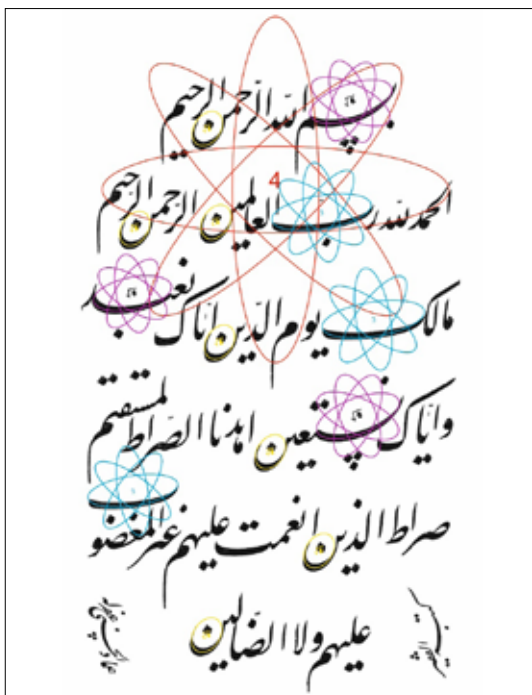 بسم الله الرحمن الرحیم
4
الحمد لله رب العالمین الرحمن الرحیم
مالک یوم الدین ایاک نعبد
وایاک نستعین اهدنا الصراط المستقیم
صراط الذین انعمت علیهم غیر المغضوب
علیهم ولا الضالین